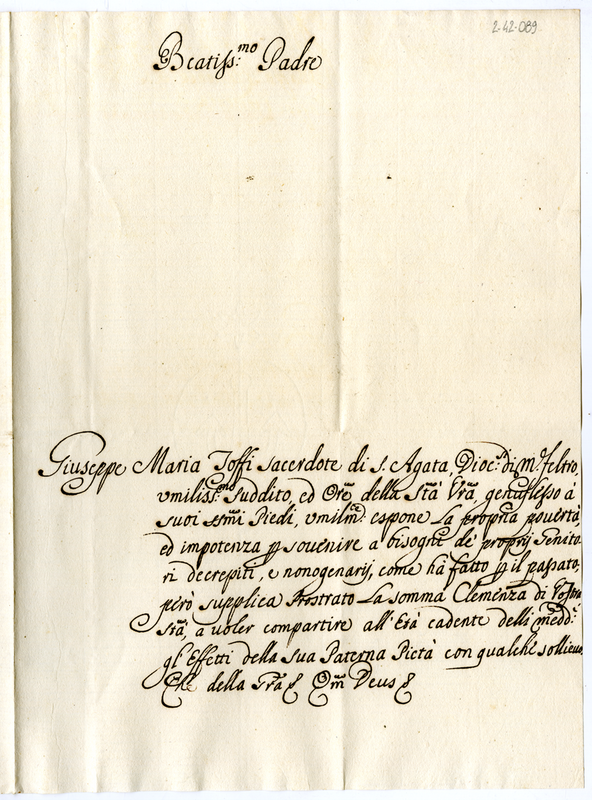 2-42-089
Beatiss:mo Padre
Giuseppe Maria Toffi sacerdote di S. Agata, Dioc:s di M.e feltro,
vmiliss:mo suddito, ed Ore della Stà Vra, genuflesso á
suoi ssmi Piedi, vmilme: espone La propria povertà,
ed impotenza p souenire a bisogni de' proprij Genito
ri decrepiti, e nonogenarij, come hà fatto p il passato,
però supplica Prostrato La somma Clemenza di Vostra
Stà, a voler compartire all'Età cadente delli medd:i
gl'Effetti della sua Paterna Pietà con qualche sollieuo
Che della Gra & Qm Deus &